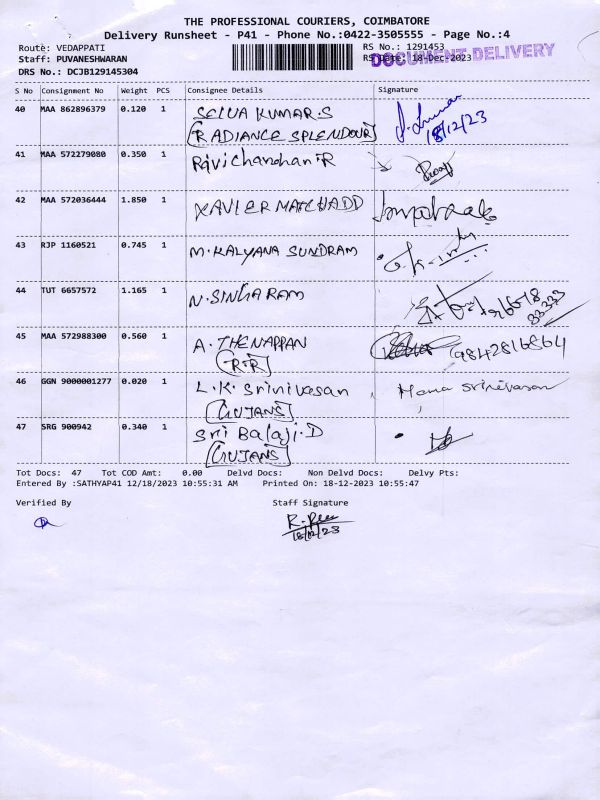 THE PROFESSIONAL COURIERS, COIMBATORE
Delivery Runsheet - P41 - Phone No.:0422-3505555 - Page No.:4
Route: VEDAPPATI RS No.: 1291453
Staff: PUVANESHWARAN RS Date: 18-Dec-2023
DOCUMENT DELIVERY
DRS No.: DCJB129145304
S No Consignment No Weight PCS Consignee Details Signature
40 MAA 862896379 0.120 1 SELVA KUMAR.S
(RADIANCE SPLENDOUR) 18/12/23
41 MAA 572279080 0.350 1 Ravichandran R
42 MAA 572036444 1.850 1 XAVIER MACHADO
43 RJP 1160521 0.745 1 M.KALYANA SUNDRAM
44 TUT 6657572 1.165 1 N.SINGARAM
45 MAA 572988300 0.560 1 A.THENAPPAN 9842816864
(R.R)
46 GGN 9000001277 0.020 1 L.K.Srinivasan Hema Srinivasan
(GUJANS)
47 SRG 900942 0.340 1 Sri Balaji.D
(GUJANS)
Tot Docs: 47 Tot COD Amt: 0.00 Delvd Docs: Non Delvd Docs: Delvy Pts:
Entered By :SATHYAP41 12/18/2023 10:55:31 AM Printed On: 18-12-2023 10:55:47
Verified By Staff Signature
18/12/23